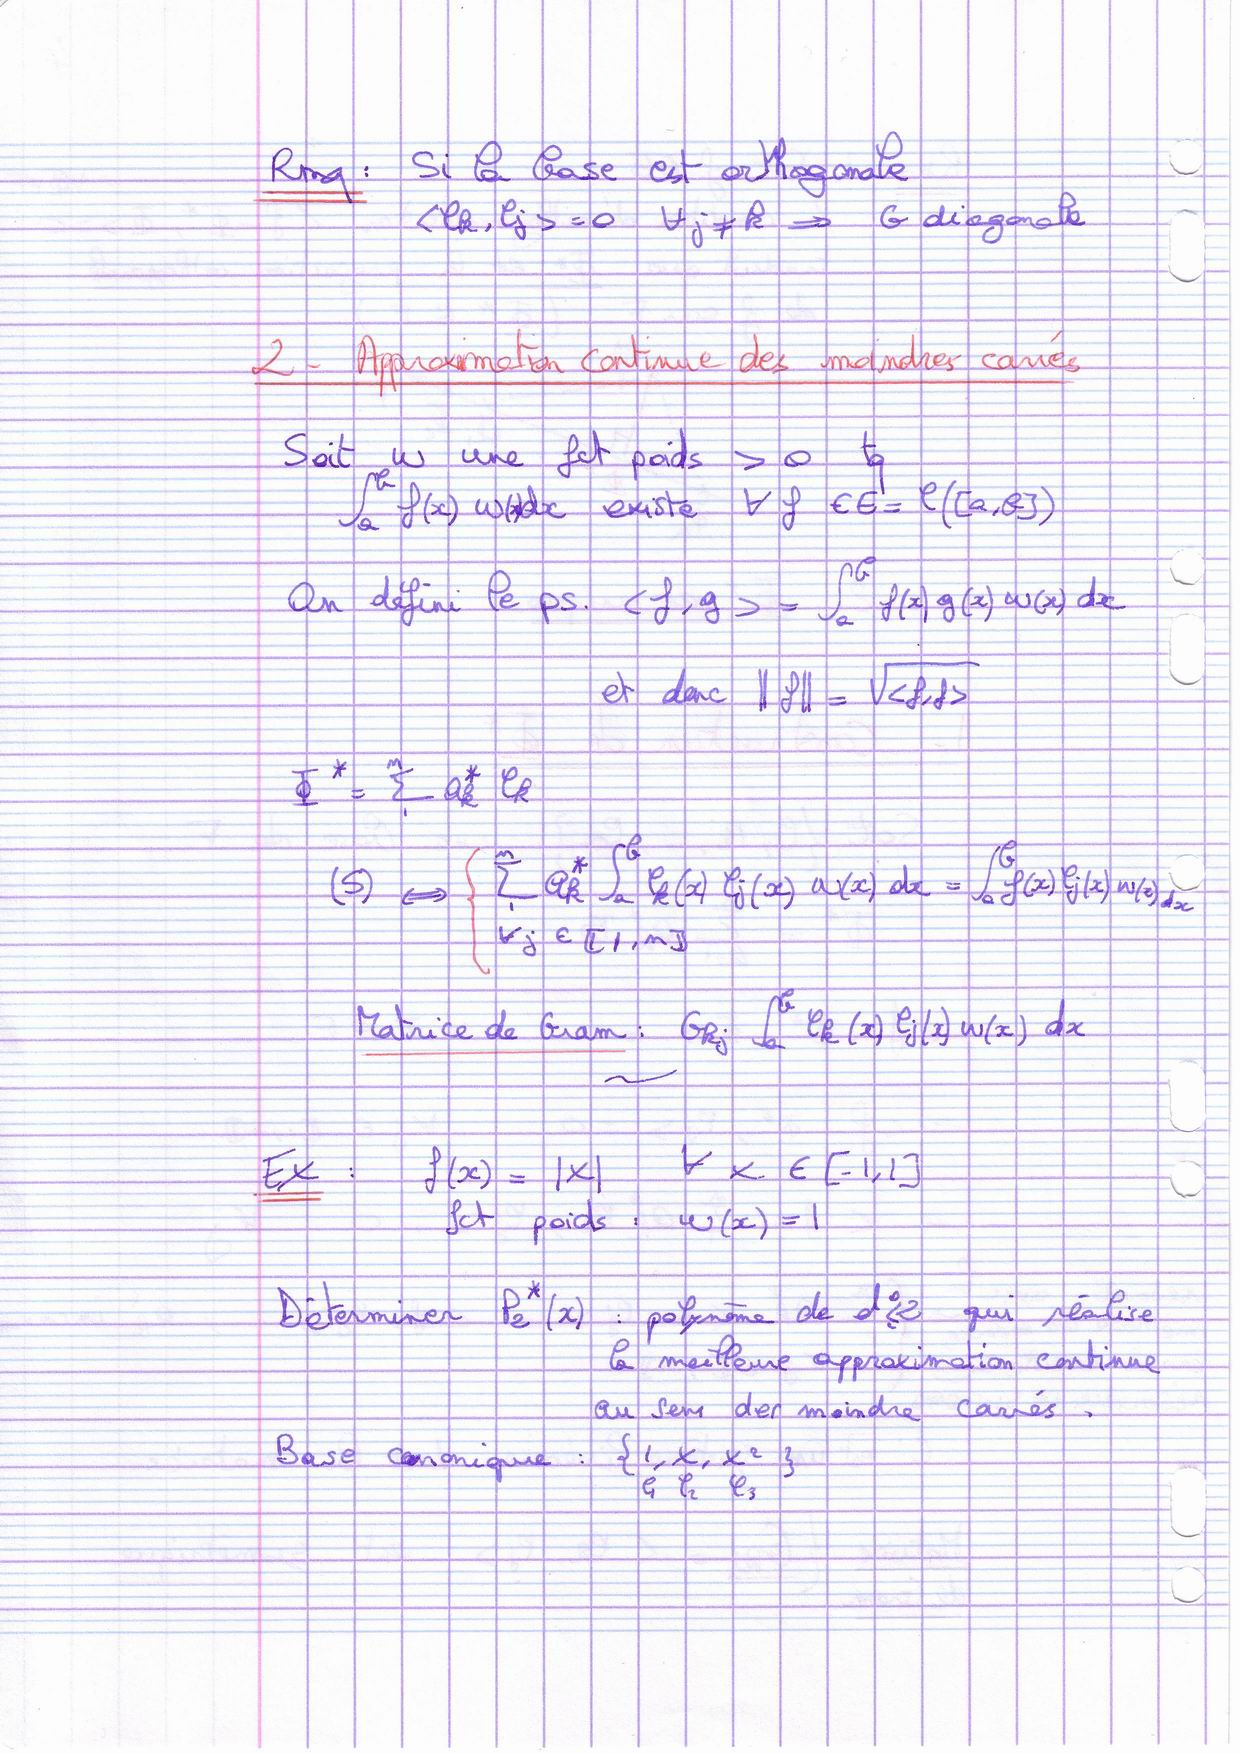 Rmq : Si la base est orthogonale
<φk, φj> = 0 ∀j ≠ k ⟹ G diagonale
2 - Approximation continue des moindres carrés
Soit w une fct poids > 0 tq
∫_a^b f(x) w(x)dx existe ∀ f ∈ E = C([a,b])
On défini le ps. <f, g> = ∫_a^b f(x) g(x) w(x) dx
et donc ‖f‖ = √<f,f>
Φ* = Σ_1^n ak* φk
(S) ⟺ { Σ_1^n ak* ∫_a^b φk(x) φj(x) w(x) dx = ∫_a^b f(x) φj(x) w(x) dx
∀j ∈ ⟦1, n⟧
Matrice de Gram : Gkj ∫_a^b φk(x) φj(x) w(x) dx
Ex : f(x) = |x| ∀ x ∈ [-1,1]
fct poids : w(x) = 1
Déterminer P2*(x) : polynôme de d° ≤ 2 qui réalise
la meilleure approximation continue
au sens des moindre carrés .
Base canonique : {1, x, x²}
φ1 φ2 φ3